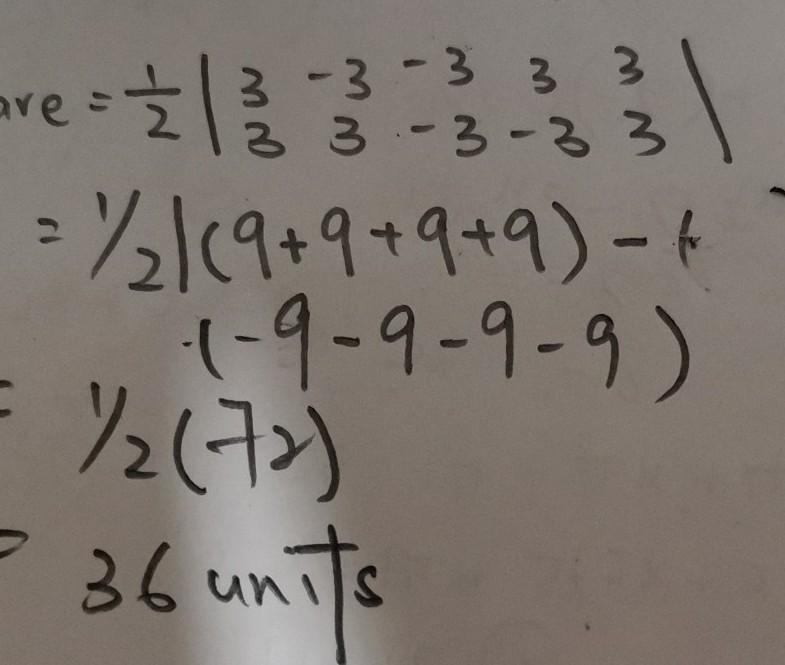 are = 1/2 | 3 -3 -3 3 3 |
3 3 -3 -3 3
= 1/2 |(9+9+9+9) -
(-9-9-9-9)
= 1/2 (72)
= 36 units